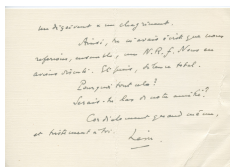 un dégoûtant et un chagrinant.
Ainsi, tu m'avais écrit que nous
referions, ensemble, une N.R.F. Nous en
avons discuté. Et puis, silence total.
Pourquoi tout cela?
Serais-tu las de notre amitié?
Cordialement quand même,
et tristement à toi.